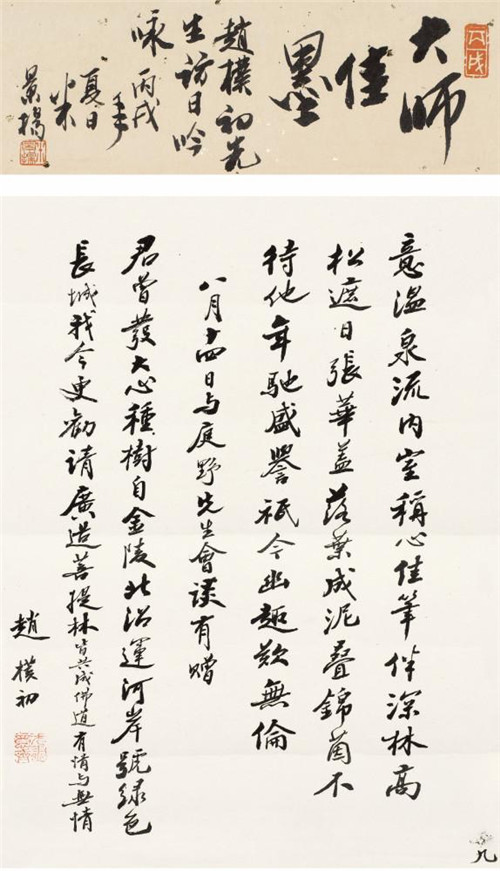 丙戌
大师
佳
墨
趙樸初先
生訪日吟
咏丙戌
年
夏日
米
景揚
意溫泉流内室稱心佳筆伴深林高
松遮日張華蓋落葉成泥疊錦茵不
待他年馳盛譽祇今幽趣歎無倫
八月十四日与庭野先生會談有贈
君嘗發大心種樹自金陵北沿運河岸號綠色
長城我今更勸請廣造菩提林皆共成佛道有情与無情
趙樸初
九